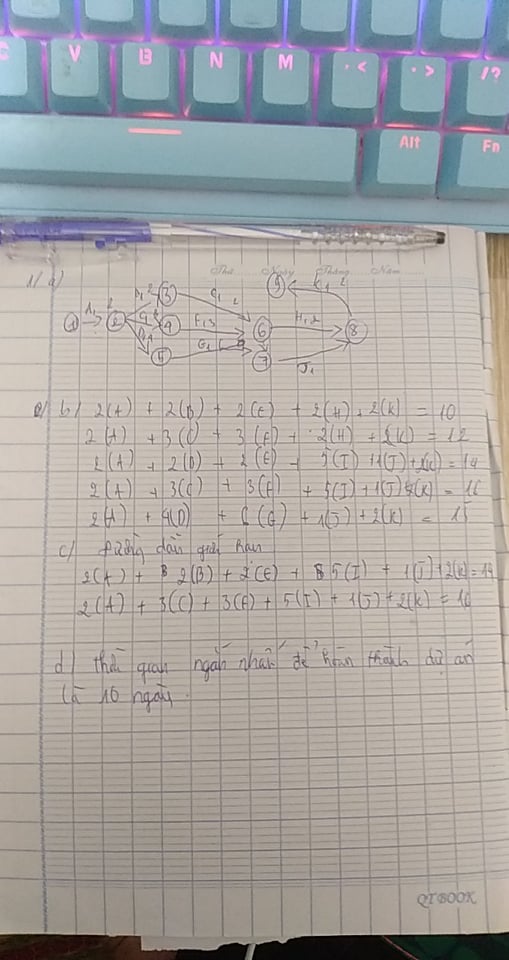 C V B N M . < . > / ?
Alt Fn
Thứ Ngày Tháng Năm
1/ a)
1 A, 2 2 3 E, 2 9 K, 2
4 F, 3 6 H, 2 8
5 G, 7 J, 1
b) 2(A) + 2(B) + 2(E) + 2(H) + 2(K) = 10
2(A) + 3(C) + 3(F) + 2(H) + 2(K) = 12
2(A) + 2(B) + 2(E) + 5(I) + 1(J) + 2(K) = 14
2(A) + 3(C) + 3(F) + 5(I) + 1(J) + 2(K) = 16
2(A) + 4(D) + 6(G) + 1(J) + 2(K) = 15
c) đường dẫn giới hạn
2(A) + 2(B) + 2(E) + 5(I) + 1(J) + 2(K) = 14
2(A) + 3(C) + 3(F) + 5(I) + 1(J) + 2(K) = 16
d) thời quan ngắn nhất để hoàn thành dự án
là 16 ngày.
QTBOOK